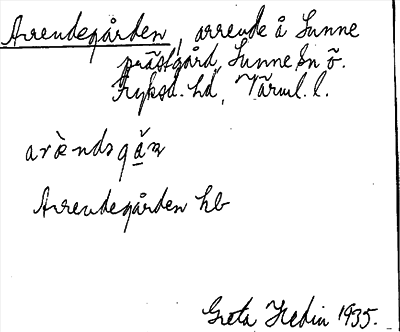 Arrendegården, arrende å Sunne
prästgård, Sunne sn ö.
Fryksd. hd, Värml. l.
Arrendegården hb
Greta Hedin 1935.